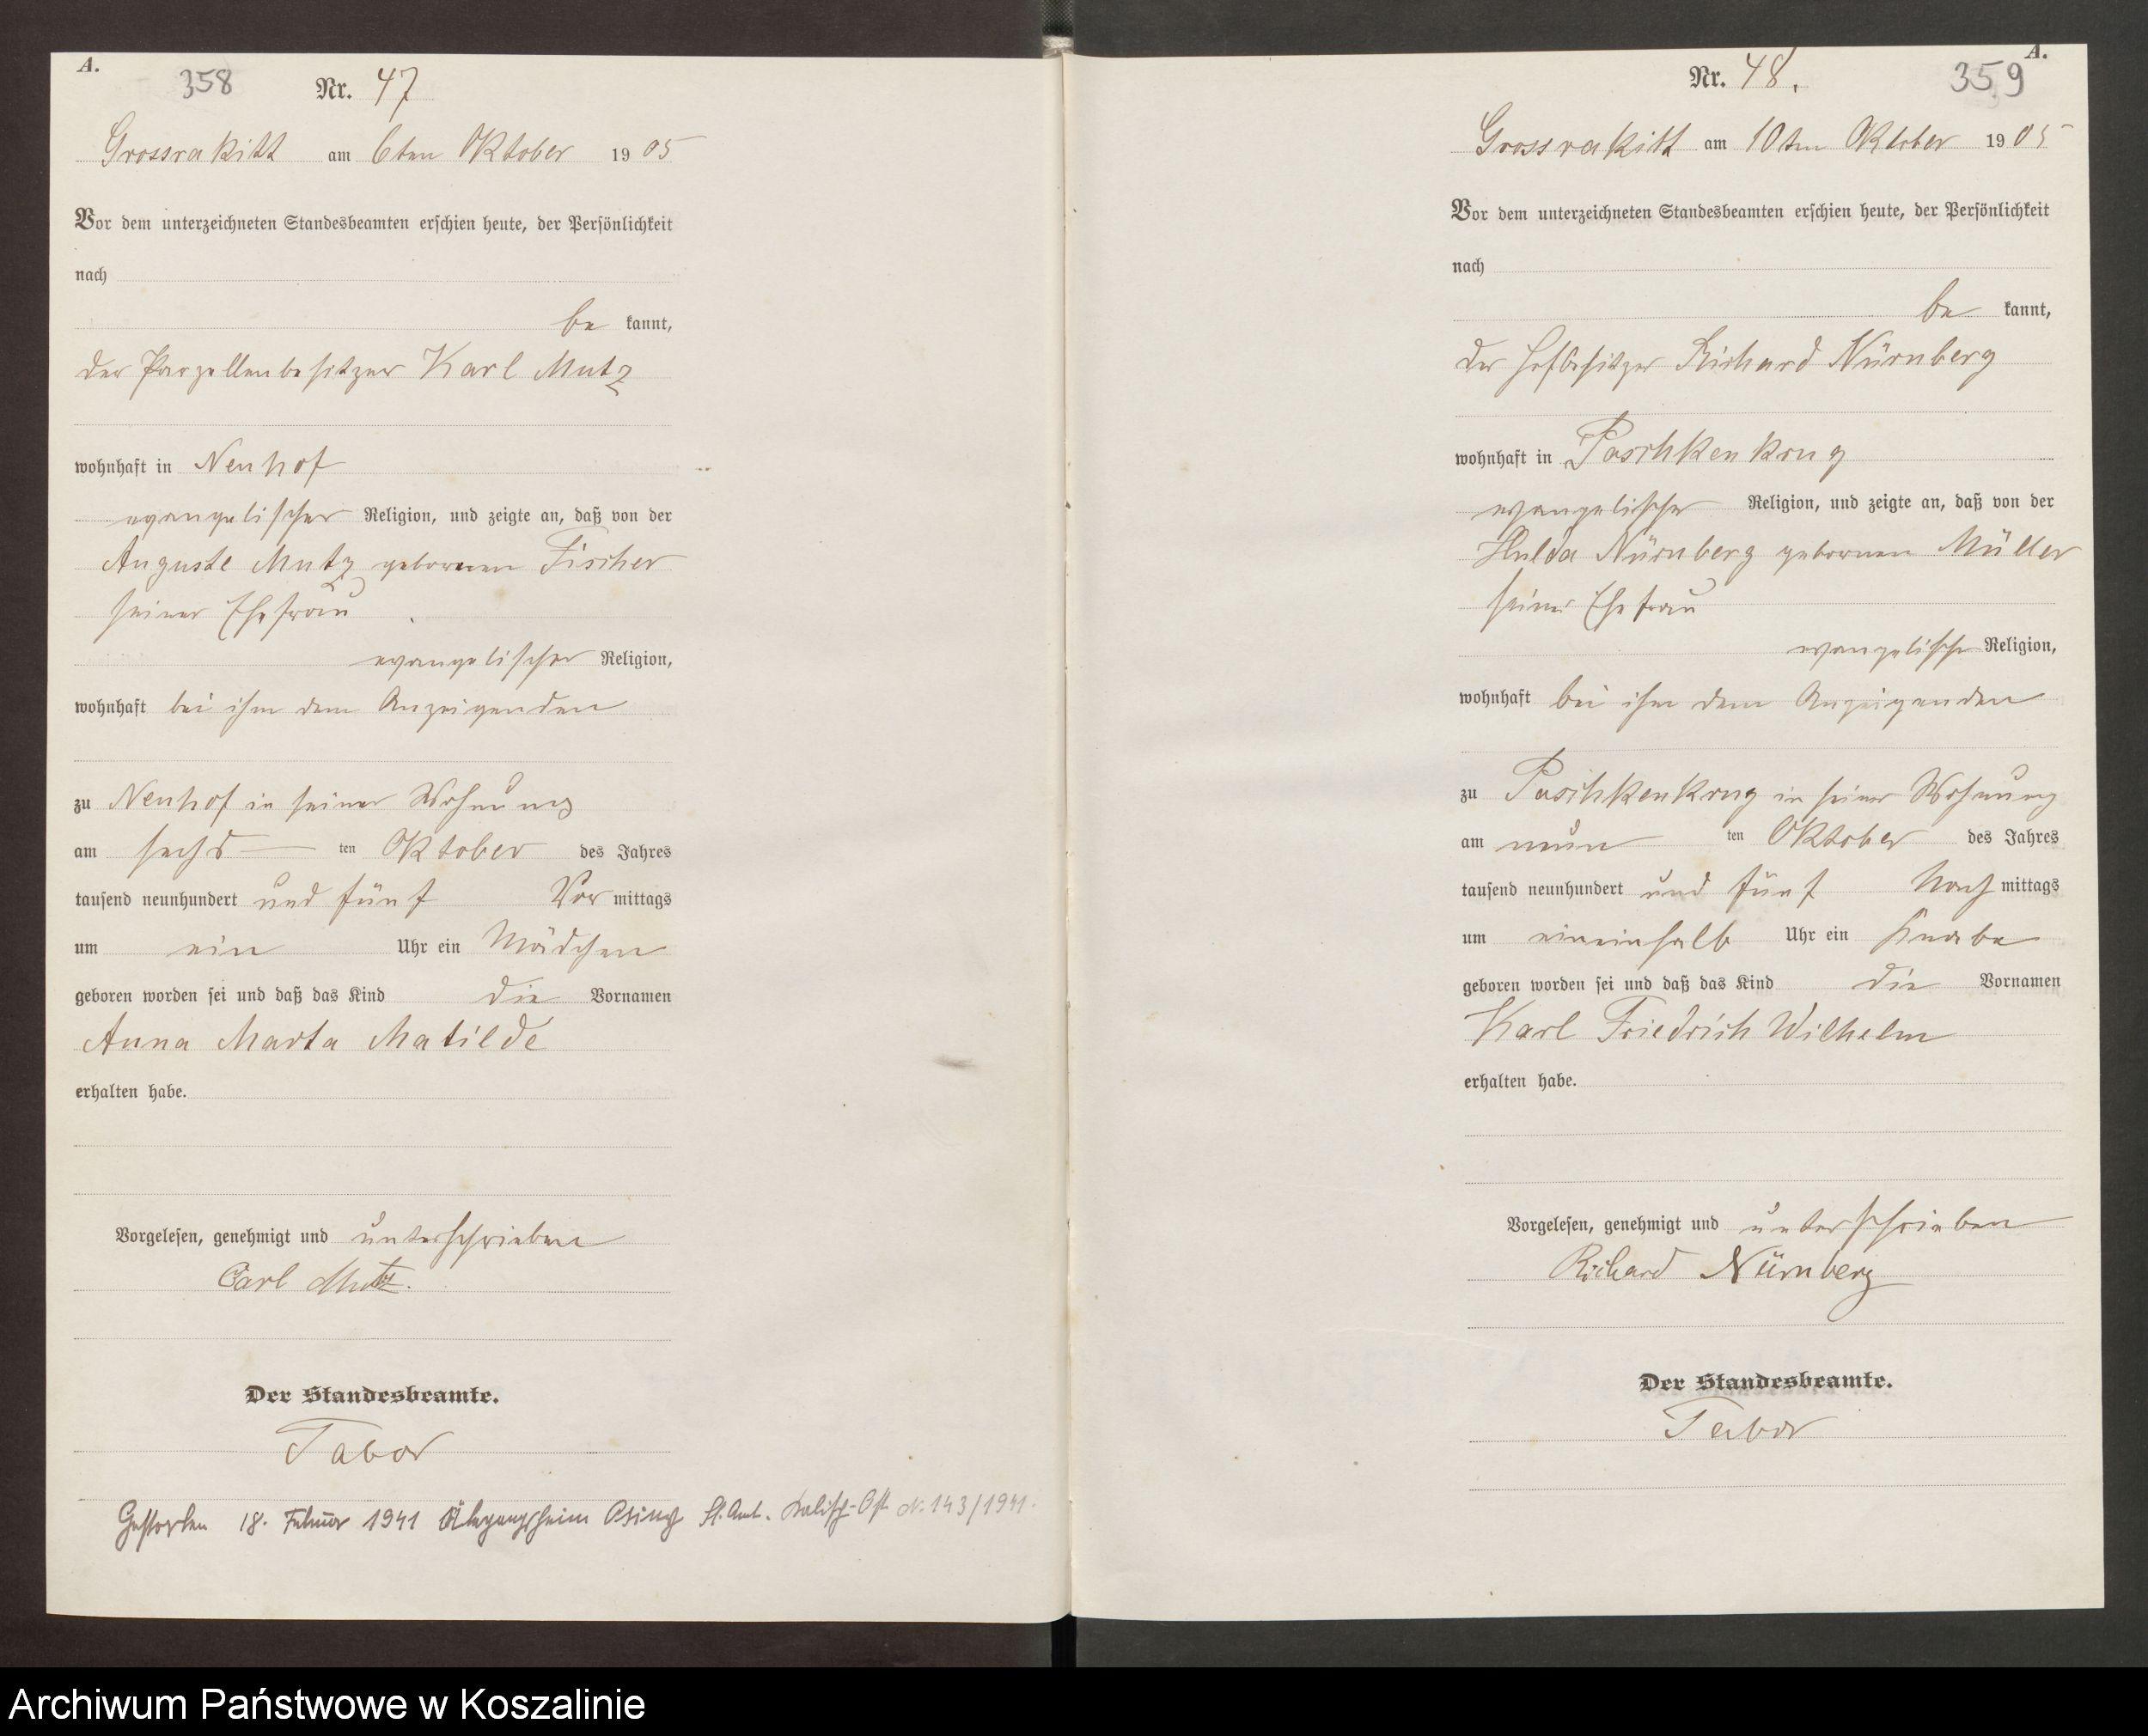 A.
358 Nr. 47
Grossrakitt am 6ten Oktober 1905
Vor dem unterzeichneten Standesbeamten erschien heute, der Persönlichkeit
nach
be kannt,
der Parzellenbesitzer Karl Mutz
wohnhaft in Neuhof
evangelischer Religion, und zeigte an, daß von der
Auguste Mutz geborenen Fischer
seiner Ehefrau
evangelischer Religion,
wohnhaft bei ihm dem Anzeigenden
zu Neuhof in seiner Wohnung
am sechs ten Oktober des Jahres
tausend neunhundert und fünf Vor mittags
um ein Uhr ein Mädchen
geboren worden sei und daß das Kind die Vornamen
Anna Marta Matilde
erhalten habe.
Vorgelesen, genehmigt und unterschrieben
Carl Mutz.
Der Standesbeamte.
Tabor
Gestorben 18. Februar 1941 St. Amt. Kalisch-Ost N. 143/1941.
A.
Nr. 48. 359
Grossrakitt am 10ten Oktober 1905
Vor dem unterzeichneten Standesbeamten erschien heute, der Persönlichkeit
nach
be kannt,
der Hofbesitzer Richard Nürnberg
wohnhaft in Paschkenkrug
evangelischer Religion, und zeigte an, daß von der
Hulda Nürnberg gebornen Müller
seiner Ehefrau
evangelischer Religion,
wohnhaft bei ihm dem Anzeigenden
zu Paschkenkrug in seiner Wohnung
am neun ten Oktober des Jahres
tausend neunhundert und fünf Nach mittags
um eineinhalb Uhr ein Knabe
geboren worden sei und daß das Kind die Vornamen
Karl Friedrich Wilhelm
erhalten habe.
Vorgelesen, genehmigt und unterschrieben
Richard Nürnberg
Der Standesbeamte.
Tabor
Archiwum Państwowe w Koszalinie